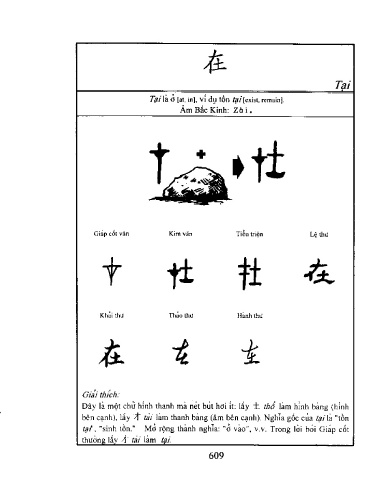 在
Tại
Tại là ở [at, in], ví dụ tồn tại [exist, remain].
Âm Bắc Kinh: Zài.
Giáp cốt văn Kim văn Tiểu triện Lệ thư
在
Khải thư Thảo thư Hành thư
在 在 在
Giải thích:
Đây là một chữ hình thanh mà nét bút hơi ít: lấy 土 thổ làm hình bàng (hình
bên cạnh), lấy 才 tài làm thanh bàng (âm bên cạnh). Nghĩa gốc của tại là "tồn
tại", "sinh tồn." Mở rộng thành nghĩa: "ở vào", v.v. Trong lời bói Giáp cốt
thường lấy 才 tài làm tại.
609